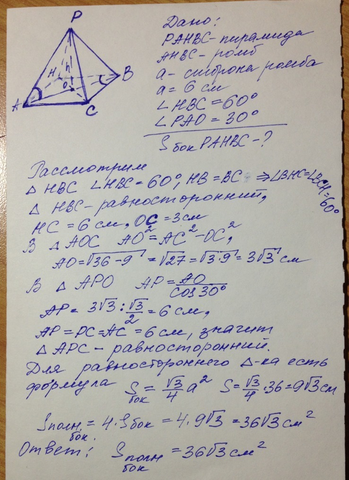 P
H
h
B
A
O
C
Дано:
PAHBC - пирамида
AHBC - ромб
a - сторона ромба
a = 6 см
∠HBC = 60°
∠PAO = 30°
Sбок PAHBC - ?
Рассмотрим
△ HBC ∠HBC = 60°, HB = BC ⇒ ∠BHC = ∠BCH = 60°
△ HBC - равносторонний,
HC = 6 см, OC = 3 см
В △ AOC AO² = AC² - OC²,
AO = √36 - 9 = √27 = √3·9 = 3√3 см
В △ APO AP = AO/cos30°
AP = 3√3 : √3/2 = 6 см,
AP = PC = AC = 6 см, значит
△ APC - равносторонний
Для равностороннего △-ка есть
формула Sбок = √3/4 a² S = √3/4 · 36 = 9√3 см
Sполн. бок. = 4 · Sбок = 4 · 9√3 = 36√3 см²
Ответ: Sполн бок = 36√3 см²